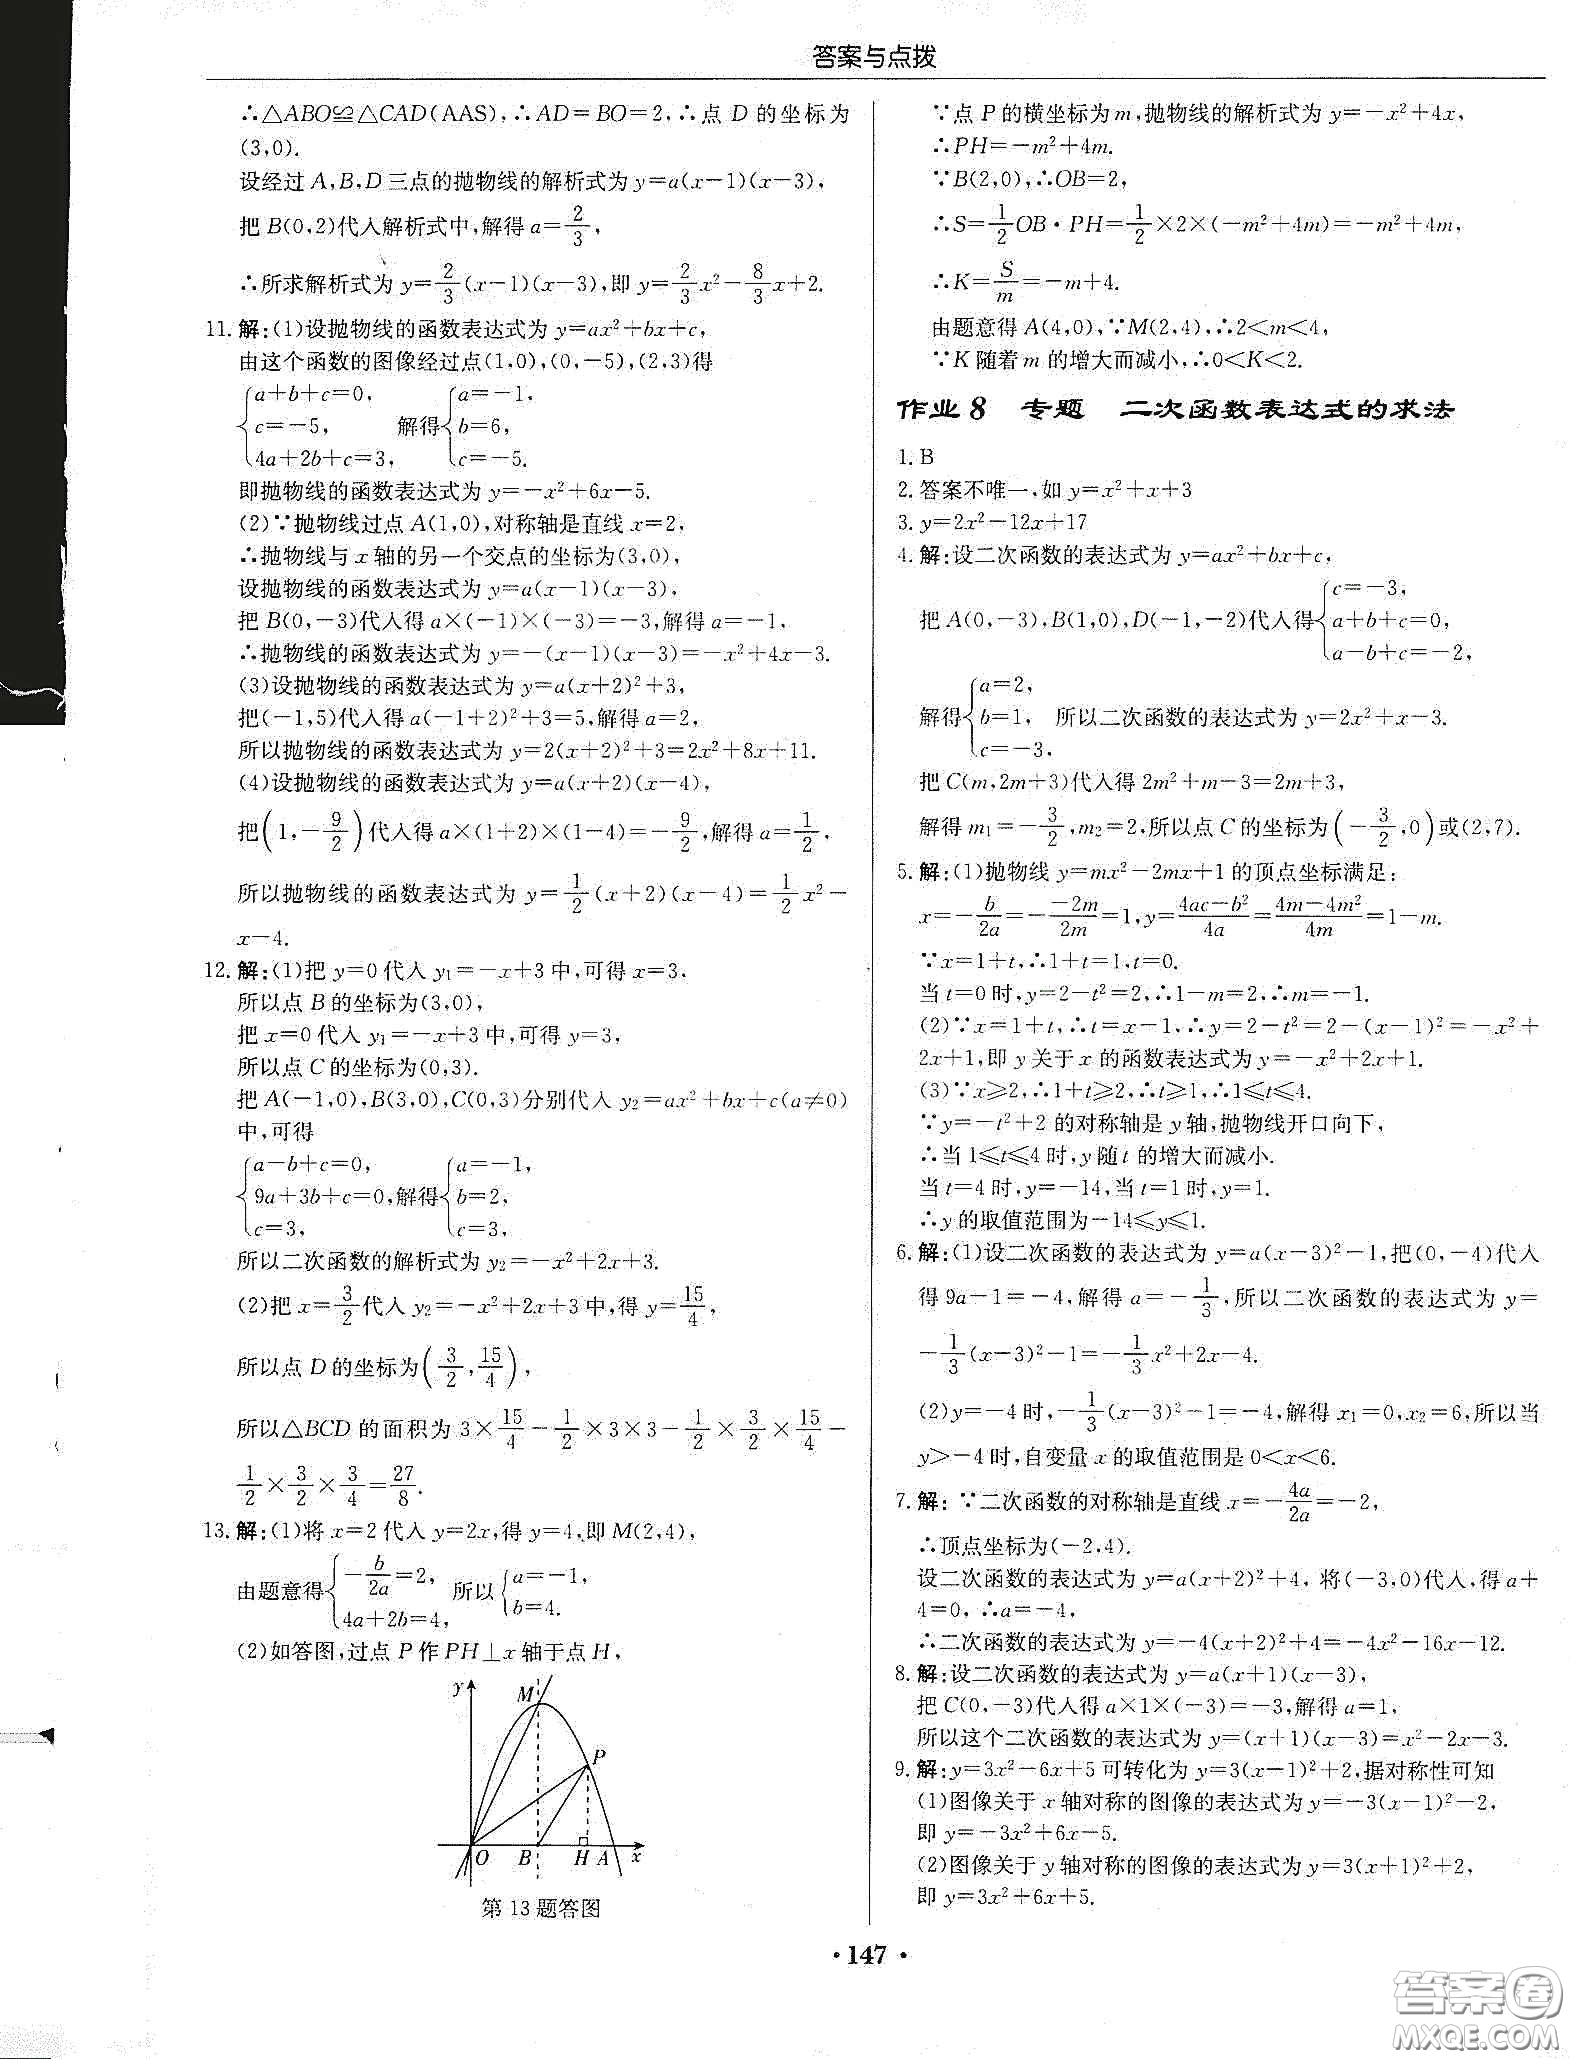 答案与点拨
∴△ABO≌△CAD(AAS),∴AD=BO=2,∴点 D 的坐标为
(3,0).
设经过 A,B,D 三点的抛物线的解析式为 y=a(x-1)(x-3),
把 B(0,2)代入解析式中,解得 a=2/3,
∴所求解析式为 y=2/3(x-1)(x-3),即 y=2/3x²-8/3x+2.
11. 解:(1)设抛物线的函数表达式为 y=ax²+bx+c,
由这个函数的图像经过点(1,0),(0,-5),(2,3)得
{a+b+c=0, {a=-1,
c=-5, 解得 b=6,
4a+2b+c=3, c=-5.
即抛物线的函数表达式为 y=-x²+6x-5.
(2)∵抛物线过点 A(1,0),对称轴是直线 x=2,
∴抛物线与 x 轴的另一个交点的坐标为(3,0),
设抛物线的函数表达式为 y=a(x-1)(x-3),
把 B(0,-3)代入得 a×(-1)×(-3)=-3,解得 a=-1,
∴抛物线的函数表达式为 y=-(x-1)(x-3)=-x²+4x-3.
(3)设抛物线的函数表达式为 y=a(x+2)²+3,
把(-1,5)代入得 a(-1+2)²+3=5,解得 a=2,
所以抛物线的函数表达式为 y=2(x+2)²+3=2x²+8x+11.
(4)设抛物线的函数表达式为 y=a(x+2)(x-4),
把(1,-9/2)代入得 a×(1+2)×(1-4)=-9/2,解得 a=1/2,
所以抛物线的函数表达式为 y=1/2(x+2)(x-4)=1/2x²-
x-4.
12. 解:(1)把 y=0 代入 y₁=-x+3 中,可得 x=3,
所以点 B 的坐标为(3,0),
把 x=0 代入 y₁=-x+3 中,可得 y=3,
所以点 C 的坐标为(0,3).
把 A(-1,0),B(3,0),C(0,3)分别代入 y₂=ax²+bx+c(a≠0)
中,可得
{a-b+c=0, {a=-1,
9a+3b+c=0,解得 b=2,
c=3, c=3,
所以二次函数的解析式为 y₂=-x²+2x+3.
(2)把 x=3/2代入 y₂=-x²+2x+3 中,得 y=15/4,
所以点 D 的坐标为(3/2,15/4),
所以△BCD 的面积为 3×15/4-1/2×3×3-1/2×3/2×15/4-
1/2×3/2×3/4=27/8.
13. 解:(1)将 x=2 代入 y=2x,得 y=4,即 M(2,4),
由题意得{-b/2a=2, 所以{a=-1,
4a+2b=4, b=4.
(2)如答图,过点 P 作 PH⊥x 轴于点 H,
y
M
P
O B H A x
第 13 题答图
∵点 P 的横坐标为 m,抛物线的解析式为 y=-x²+4x,
∴PH=-m²+4m.
∵B(2,0),∴OB=2,
∴S=1/2OB·PH=1/2×2×(-m²+4m)=-m²+4m,
∴K=S/m=-m+4.
由题意得 A(4,0),∵M(2,4),∴2<m<4,
∵K 随着 m 的增大而减小,∴0<K<2.
作业 8 专题 二次函数表达式的求法
1. B
2. 答案不唯一,如 y=x²+x+3
3. y=2x²-12x+17
4. 解:设二次函数的表达式为 y=ax²+bx+c,
{c=-3,
把 A(0,-3),B(1,0),D(-1,-2)代入得 a+b+c=0,
a-b+c=-2,
{a=2,
解得 b=1, 所以二次函数的表达式为 y=2x²+x-3.
c=-3,
把 C(m,2m+3)代入得 2m²+m-3=2m+3,
解得 m₁=-3/2,m₂=2,所以点 C 的坐标为(-3/2,0)或(2,7).
5. 解:(1)抛物线 y=mx²-2mx+1 的顶点坐标满足:
x=-b/2a=--2m/2m=1,y=4ac-b²/4a=4m-4m²/4m=1-m.
∵x=1+t,∴1+t=1,t=0.
当 t=0 时,y=2-t²=2,∴1-m=2,∴m=-1.
(2)∵x=1+t,∴t=x-1,∴y=2-t²=2-(x-1)²=-x²+
2x+1,即 y 关于 x 的函数表达式为 y=-x²+2x+1.
(3)∵x≥2,∴1+t≥2,∴t≥1,∴1≤t≤4.
∵y=-t²+2 的对称轴是 y 轴,抛物线开口向下,
∴当 1≤t≤4 时,y 随 t 的增大而减小.
当 t=4 时,y=-14,当 t=1 时,y=1.
∴y 的取值范围为-14≤y≤1.
6. 解:(1)设二次函数的表达式为 y=a(x-3)²-1,把(0,-4)代入
得 9a-1=-4,解得 a=-1/3,所以二次函数的表达式为 y=
-1/3(x-3)²-1=-1/3x²+2x-4.
(2)y=-4 时,-1/3(x-3)²-1=-4,解得 x₁=0,x₂=6,所以当
y>-4 时,自变量 x 的取值范围是 0<x<6.
7. 解: ∵二次函数的对称轴是直线 x=-4a/2a=-2,
∴顶点坐标为(-2,4).
设二次函数的表达式为 y=a(x+2)²+4, 将(-3,0)代入,得 a+
4=0, ∴a=-4,
∴二次函数的表达式为 y=-4(x+2)²+4=-4x²-16x-12.
8. 解:设二次函数的表达式为 y=a(x+1)(x-3),
把 C(0,-3)代入得 a×1×(-3)=-3,解得 a=1,
所以这个二次函数的表达式为 y=(x+1)(x-3)=x²-2x-3.
9. 解:y=3x²-6x+5 可转化为 y=3(x-1)²+2,据对称性可知
(1)图像关于 x 轴对称的图像的表达式为 y=-3(x-1)²-2,
即 y=-3x²+6x-5.
(2)图像关于 y 轴对称的图像的表达式为 y=3(x+1)²+2,
即 y=3x²+6x+5.
· 147 ·
答案卷
MXQE.COM